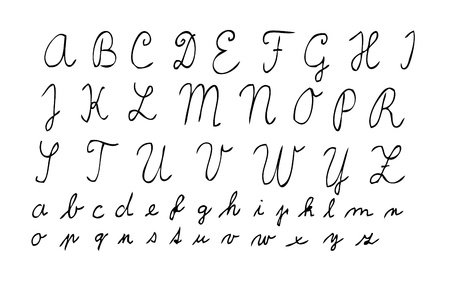 A B C D E F G H I
J K L M N O P R
S T U V W Y Z
a b c d e f g h i j k l m n
o p q r s t u v w x y z